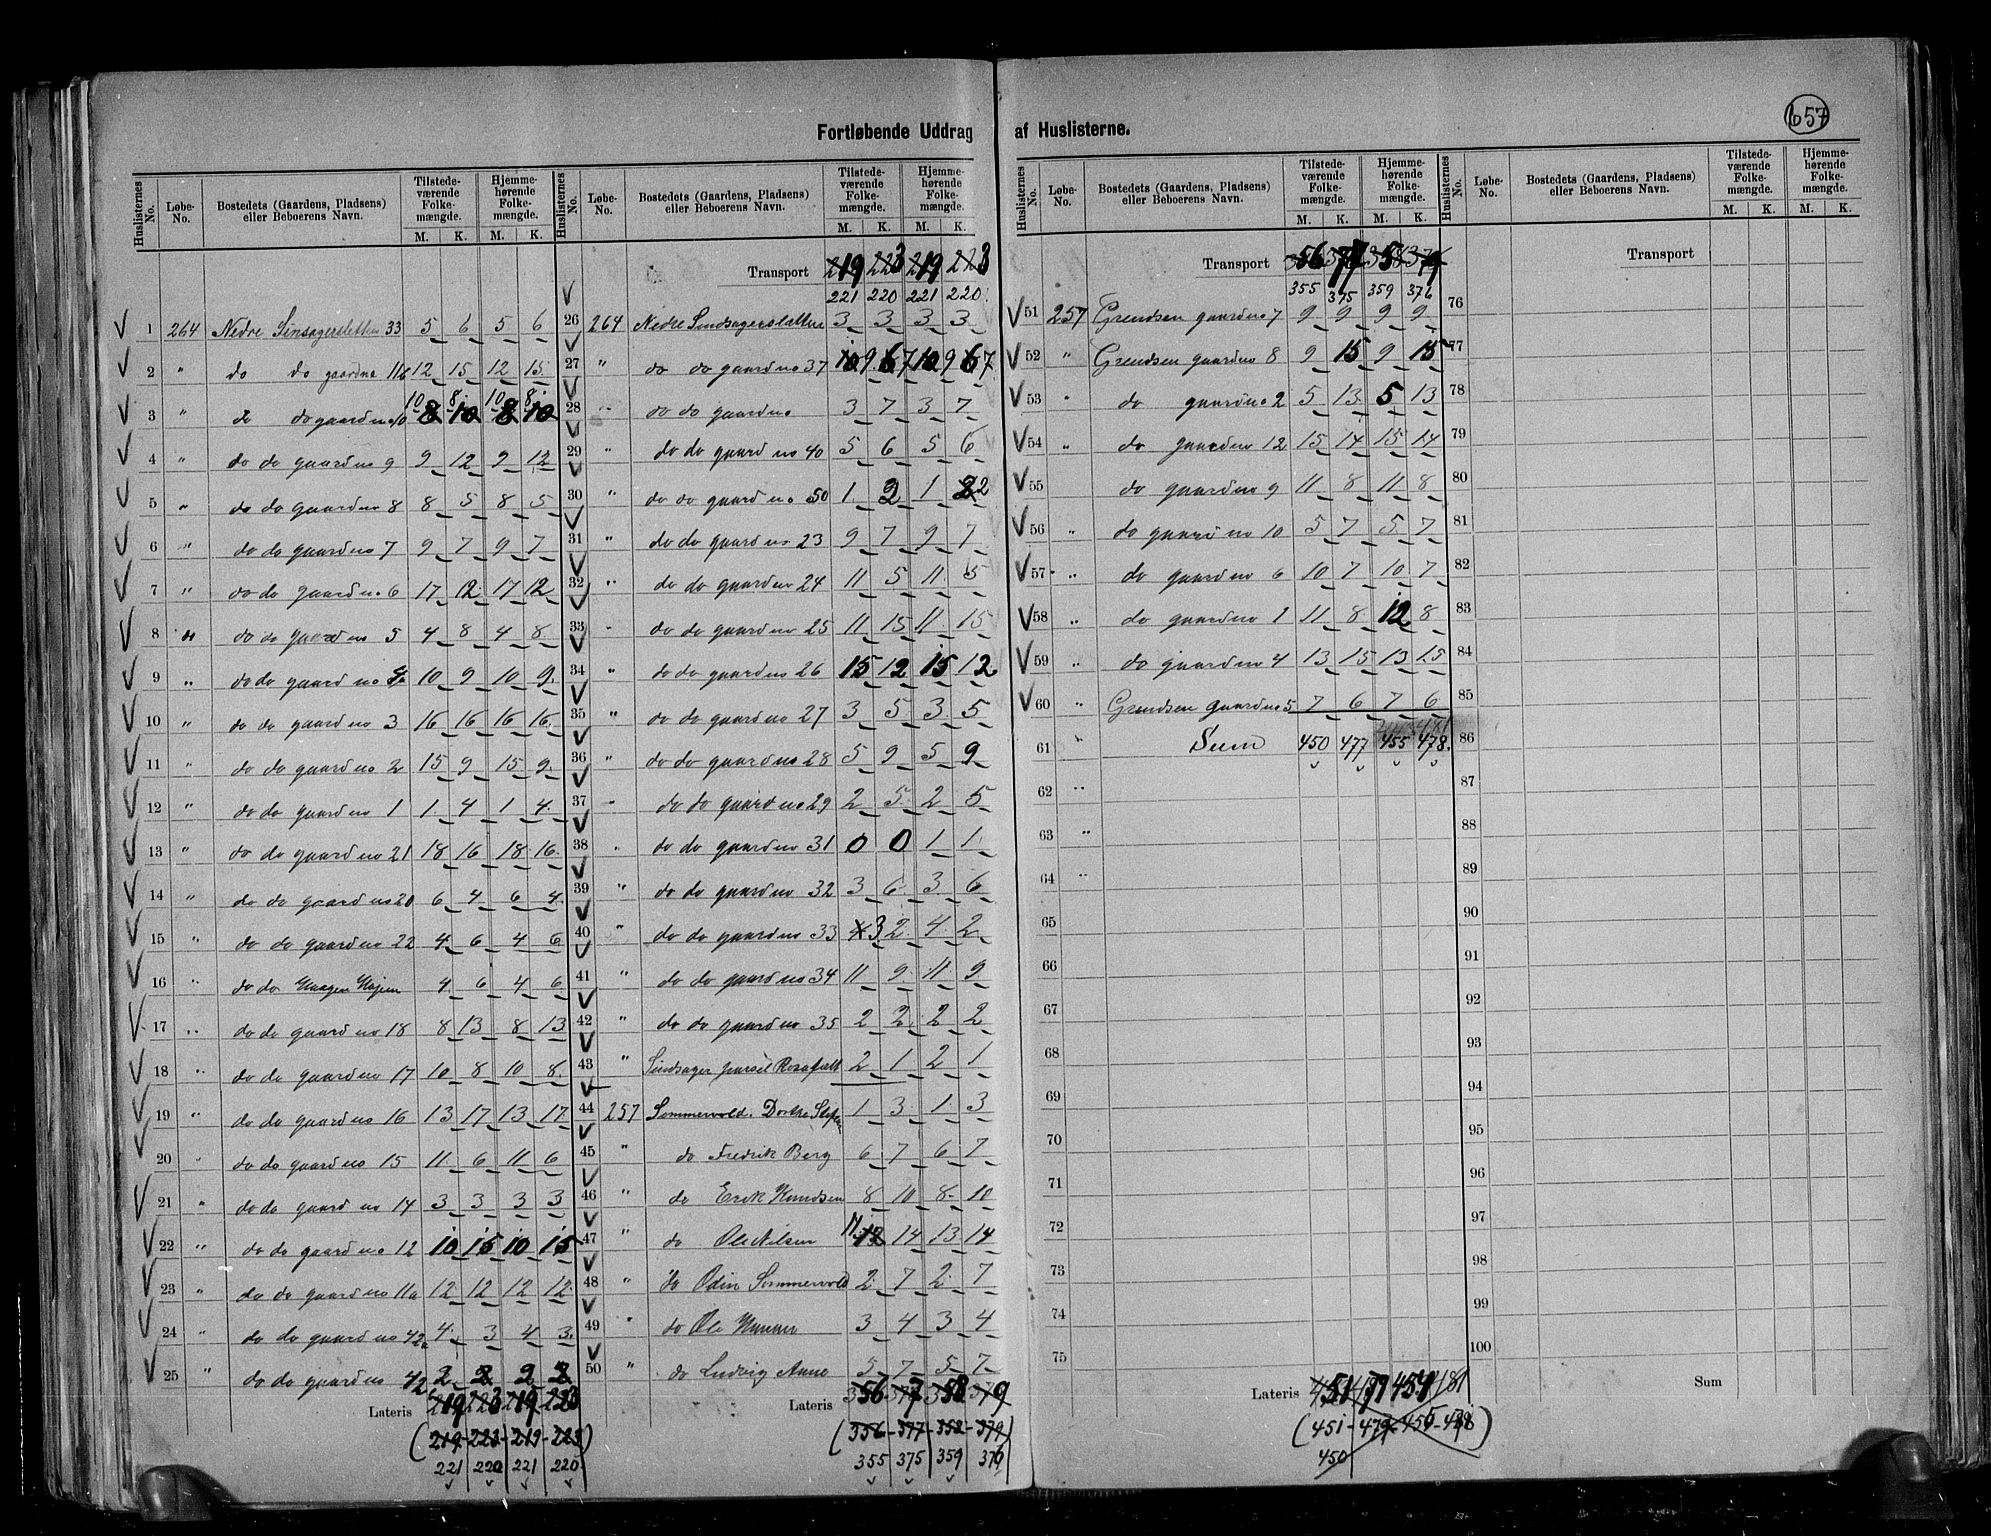 657
Fortløbende Uddrag af Huslisterne.
Huslisternes No. Løbe-No. Bostedets (Gaardens, Pladsens) eller Beboerens Navn. Tilstede-værende Folke-mængde. Hjemme-hørende Folke-mængde.
M. K. M. K.
1 264 Nedre Sinsagersletten 33 5 6 5 6
2 " do do gaardno 11b 12 15 12 15
3 " do do gaardno 10 10 8 10 8
4 " do do gaardno 9 9 12 9 12
5 " do do gaardno 8 8 5 8 5
6 " do do gaardno 7 9 7 9 7
7 " do do gaardno 6 17 12 17 12
8 do do do gaardno 5 4 8 4 8
9 " do do gaardno 10 9 10 9
10 " do do gaardno 3 16 16 16 16
11 " do do gaardno 2 15 9 15 9
12 " do do gaardno 1 1 4 1 4
13 " do do gaardno 21 18 16 18 16
14 " do do gaardno 20 6 4 6 4
15 " do do gaardno 22 4 6 4 6
16 " do do 4 6 4 6
17 " do do gaardno 18 8 13 8 13
18 " do do gaardno 17 10 8 10 8
19 " do do gaardno 16 13 17 13 17
20 " do do gaardno 15 11 6 11 6
21 " do do gaardno 14 3 3 3 3
22 " do do gaardno 12 10 15 10 15
23 " do do gaardno 11a 12 12 12 12
24 " do do gaardno 42a 4 3 4 3
25 " do do gaardno 42 2 2 2 2
Lateris 219 223 219 223
(219-223-219-223)
221 220 221 220
Huslisternes No. Løbe-No. Bostedets (Gaardens, Pladsens) eller Beboerens Navn. Tilstede-værende Folke-mængde. Hjemme-hørende Folke-mængde.
M. K. M. K.
Transport 219 223 219 223
221 220 221 220
26 264 Nedre Sindsagersletten 3 3 3 3
27 " do do gaardno 37 10 9 6 7 10 9 6 7
28 " do do gaardno 3 7 3 7
29 " do do gaardno 40 5 6 5 6
30 " do do gaardno 50 1 2 1 2
31 " do do gaardno 23 9 7 9 7
32 " do do gaardno 24 11 5 11 5
33 " do do gaardno 25 11 15 11 15
34 " do do gaardno 26 15 12 15 12
35 " do do gaardno 27 3 5 3 5
36 " do do gaardno 28 5 9 5 9
37 " do do gaardno 29 2 5 2 5
38 " do do gaardno 31 0 0 1 1
39 " do do gaardno 32 3 6 3 6
40 " do do gaardno 33 4 3 2 4 2
41 " do do gaardno 34 11 9 11 9
42 " do do gaardno 35 2 2 2 2
43 " Sindsager parsel 2 1 2 1
44 257 Sommervold. Dorthe 1 3 1 3
45 " do Fredrik Berg 6 7 6 7
46 " do Erik Knudsen 8 10 8 10
47 " do Ole Nilsen 11 14 13 14
48 " do Odin Sommervold 2 7 2 7
49 " do Ole 3 4 3 4
50 " do Ludvig Aune 5 7 5 7
Lateris 356 377 358 379
(356-377-358-379)
355 375 359 376
Huslisternes No. Løbe-No. Bostedets (Gaardens, Pladsens) eller Beboerens Navn. Tilstede-værende Folke-mængde. Hjemme-hørende Folke-mængde.
M. K. M. K.
Transport 356 377 358 379
355 375 359 376
51 257 Grendsen gaardno 7 9 9 9 9
52 " Grendsen gaardno 8 9 15 9 15
53 " do gaardno 2 5 13 5 13
54 " do gaardno 12 15 14 15 14
55 do gaardno 9 11 8 11 8
56 " do gaardno 10 5 7 5 7
57 " do gaardno 6 10 7 10 7
58 " do gaardno 1 11 8 12 8
59 " do gaardno 4 13 15 13 15
60 " Grendsen gaardno 5 7 6 7 6
61 " Sum 450 477 455 478
62 "
63 "
64 "
65
66
67
68
69
70
71
72
73
74
75
Lateris 451 479 454 481
(451-479-455-478)
450
Huslisternes No. Løbe-No. Bostedets (Gaardens, Pladsens) eller Beboerens Navn. Tilstede-værende Folke-mængde. Hjemme-hørende Folke-mængde.
M. K. M. K.
Transport
76
77
78
79
80
81
82
83
84
85
86
87
88
89
90
91
92
93
94
95
96
97
98
99
100
Sum